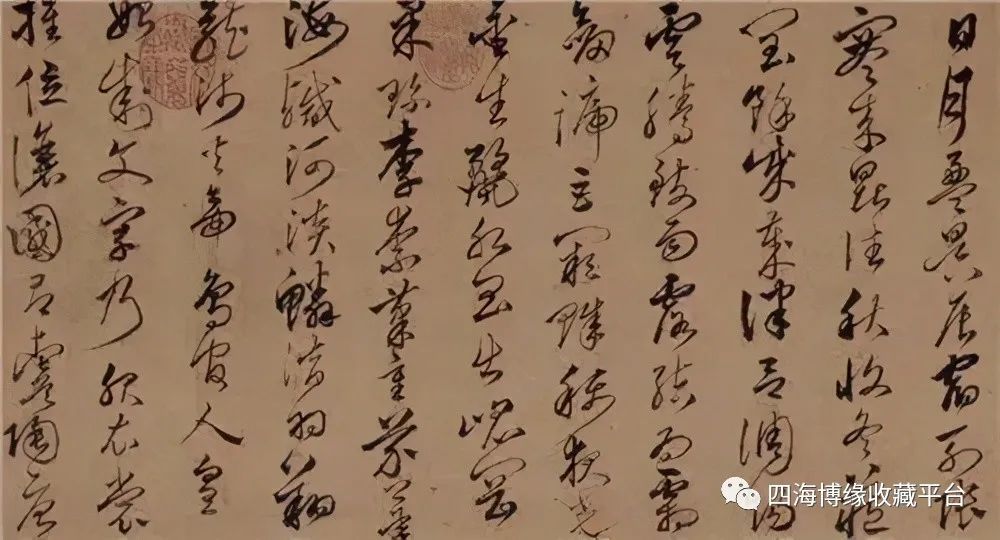 日月盈昃辰宿列張
寒來暑往秋收冬藏
閏餘成歲律呂調陽
雲騰致雨露結為霜
劍號巨闕珠稱夜光
金生麗水玉出崐岡
果珍李柰菜重芥薑
海鹹河淡鱗潛羽翔
龍師火帝鳥官人皇
始制文字乃服衣裳
推位讓國有虞陶唐
四海博缘收藏平台